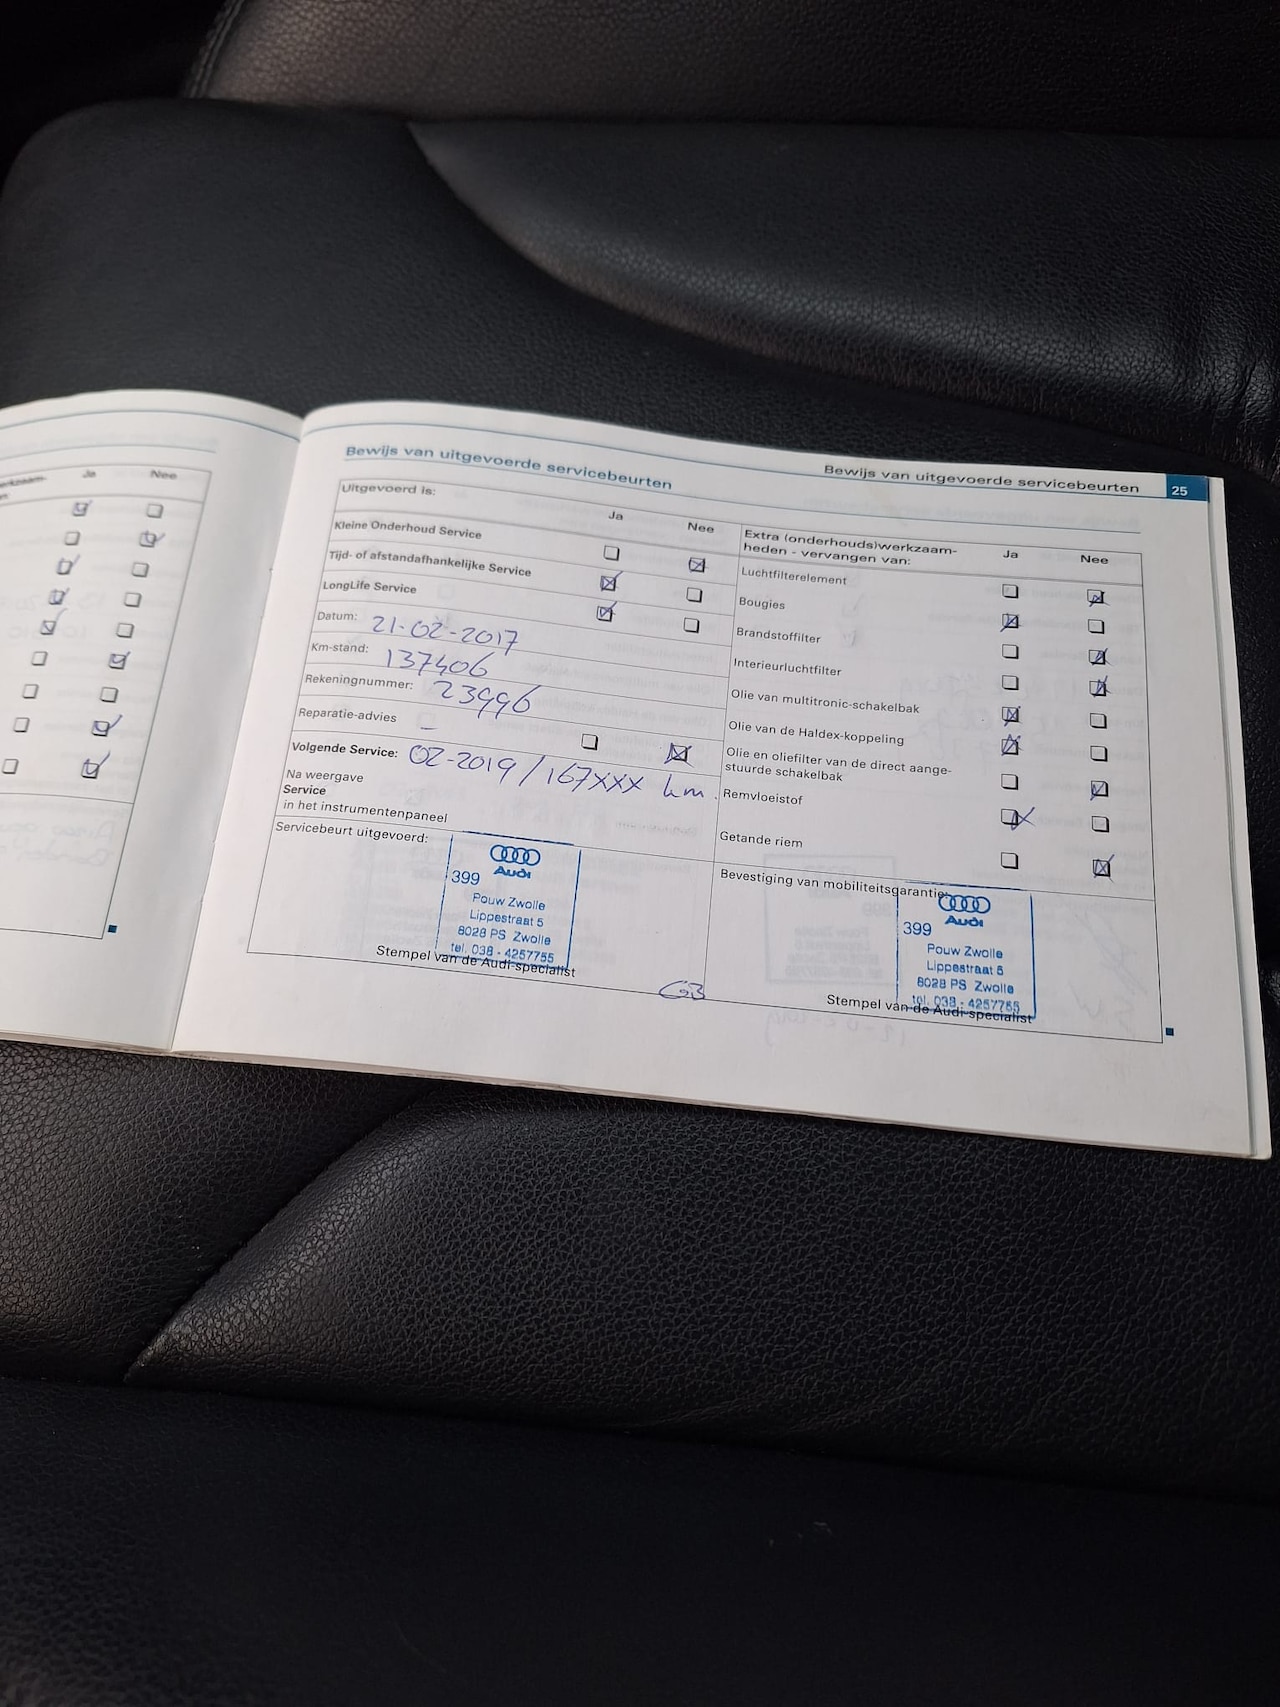 Ja
Nee
Bewijs van uitgevoerde servicebeurten
25
Bewijs van uitgevoerde servicebeurten
Uitgevoerd is:
Ja
Nee
Kleine Onderhoud Service
Tijd- of afstandafhankelijke Service
LongLife Service
Datum: 21-02-2017
Km-stand: 137406
Rekeningnummer: 23996
Reparatie-advies
Volgende Service: 02-2019/167xxx km.
Na weergave
Service
in het instrumentenpaneel
Servicebeurt uitgevoerd:
Audi
399
Pouw Zwolle
Lippestraat 5
8028 PS Zwolle
tel. 038 - 4257755
Stempel van de Audi-specialist
Extra (onderhouds)werkzaam-
heden - vervangen van:
Ja
Nee
Luchtfilterelement
Bougies
Brandstoffilter
Interieurluchtfilter
Olie van multitronic-schakelbak
Olie van de Haldex-koppeling
Olie en oliefilter van de direct aange-
stuurde schakelbak
Remvloeistof
Getande riem
Bevestiging van mobiliteitsgarantie:
Audi
399
Pouw Zwolle
Lippestraat 5
8028 PS Zwolle
tel. 038 - 4257755
Stempel van de Audi-specialist